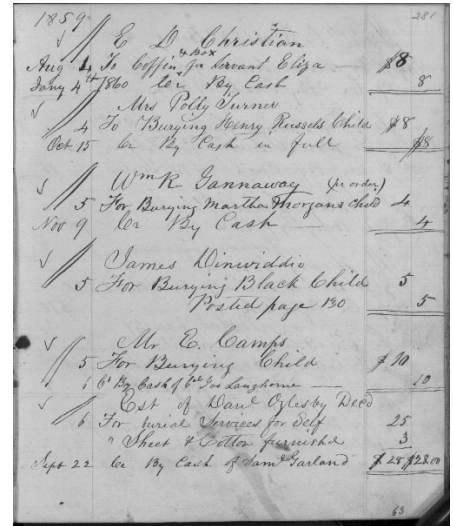 1859
281
E D Christian
Aug 4 To Coffin & Box for Servant Eliza $8
Jany 4th 1860 Cr By Cash 8
Mrs Polly Turner
4 To Burying Henry Russels Child $8
Oct 15 Cr By Cash in full $8
Wm R. Gannaway (pr order)
5 For Burying Martha Morgans Child 4
Nov 9 Cr By Cash 4
James Dinwiddie
5 For Burying Black Child 5
Posted page 130 5
Mr E. Camps
5 For Burying Child $10
6 Cr By Cash of Jos Langhorne 10
Est of Danl Oglesby Decd
6 For burial Services for Self 25
" Sheet & Cotton furnishd 3
Sept 22 Cr By Cash of Saml Garland $28 $28.00
63